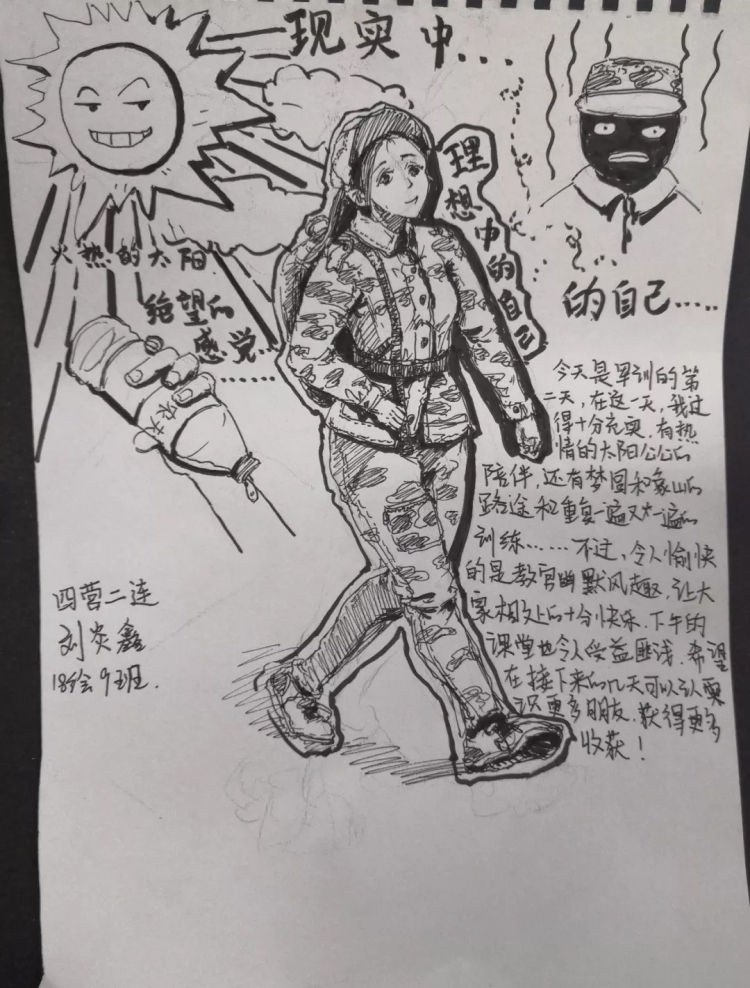 现实中...
理想中的自己
的自己.....
火热的太阳
绝望的
感觉...
......
农夫
今天是军训的第
二天,在这一天,我过
得十分充实,有热
情的太阳公公的
陪伴,还有梦圆和象山的
路途和重复一遍又一遍的
训练......不过,令人愉快
的是教官幽默风趣,让大
家相处的十分快乐.下午的
课堂也令人受益匪浅.希望
在接下来的几天可以认
识更多朋友.获得更多
收获!
四营二连
刘炎鑫
18绘9班.